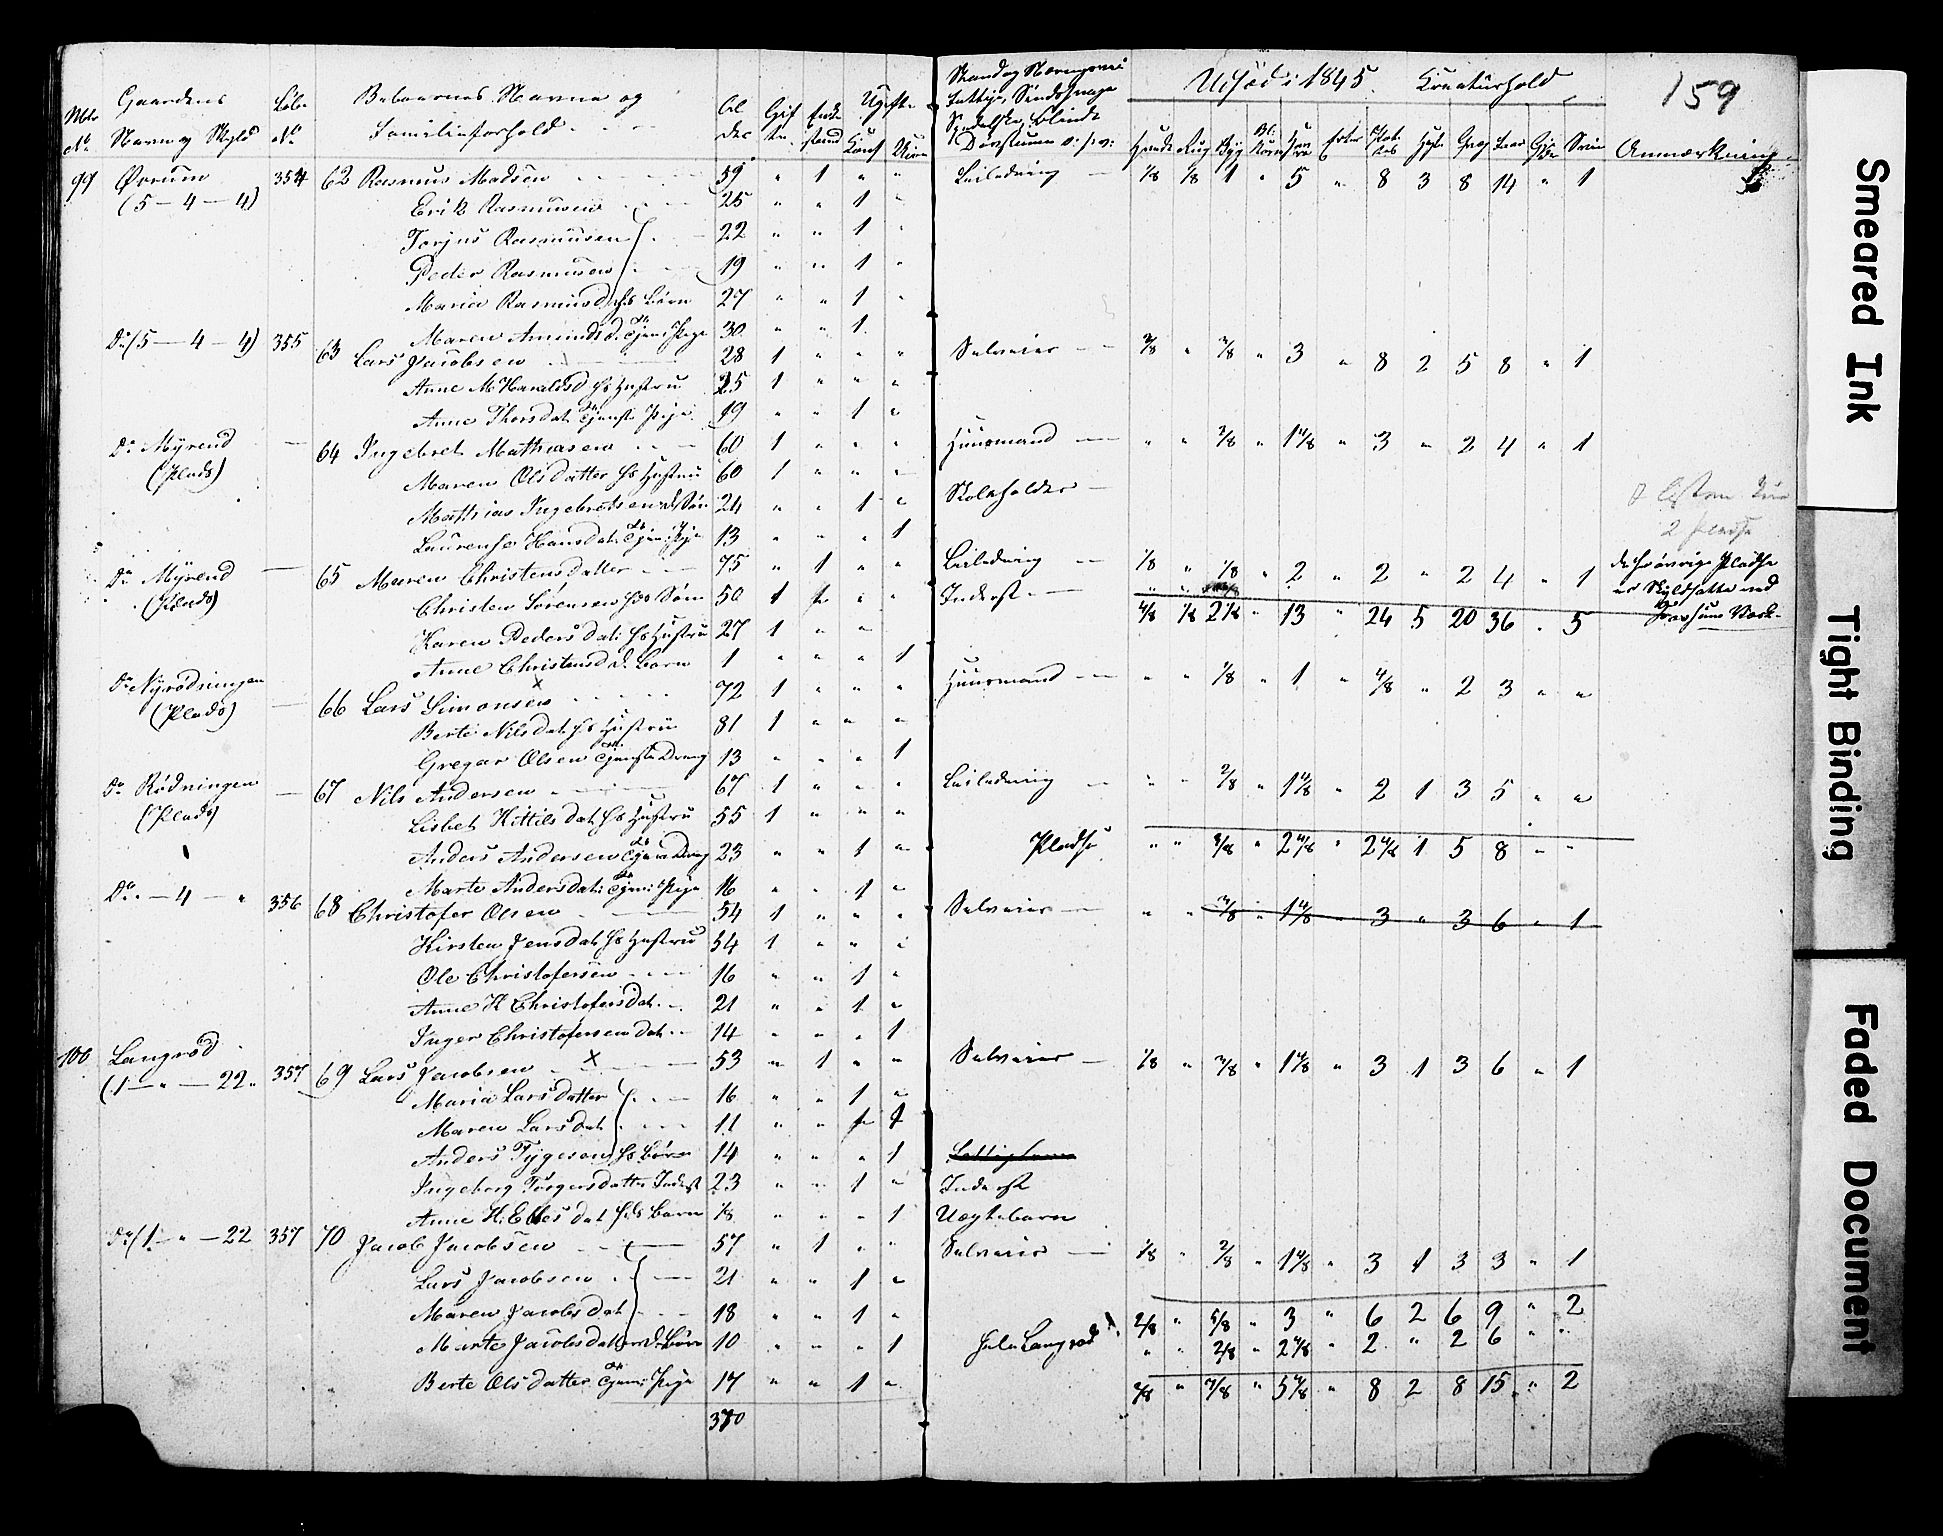 159
Udsæd i 1845. Kreaturhold
Gaardens Navn og Skyld
Løbe No
Beboernes Navne og Familieforhold
Anmærkning
99 Ørrum 354 62 Rasmus Madsen 59 " 1 " " Leilending 1/8 1/8 1 " 5 " 8 3 8 14 " 1
(5-4-4) Erik Rasmusen 25 " " 1 "
Torjus Rasmusen 22 " " 1 "
Peder Rasmusen 19 " " 1 "
Maria Rasmusd. hs Børn 27 " " 1 "
Maren Amundsd. Tjen: Pige 30 " " 1
Do (5-4-4) 355 63 Lars Jacobsen 28 1 " " " Selveier 2/8 " 3/8 " 3 " 8 2 5 8 " 1
Anne M. Haraldsd hs Hustru 25 1 " " "
Anne Thorsdat. Tjenst: Pige 19 " " 1 "
Do Myrend 64 Ingebret Mathiasen 60 1 " " " Huusmand " " 2/8 " 1 4/8 " 3 " 2 4 " 1
(Plads) Maren Olsdatter hs Hustru 60 1 " " "
Mathias Ingebretsen d. Søn 24 " " 1 " Skoleholder
Laurense Hansdat. Tjen: Pige 13 " " " 1
Do Myrend 65 Maren Christensdatter 75 " 1 " " Leilending 1/8 " 1/8 " 2 " 2 " 2 4 " 1
(Plads) Christen Sørensen hds Søn 50 1 " " Inderst
4/8 1/8 2 1/8 " 13 " 24 5 20 36 " 5
2 Pladse
de øvrige Pladse
er Skyldsatte ved
Karen Pedersdat: hs Hustru 27 1 " "
Anne Christensd d. Barn 1 " " " 1
Do Nyrødningen 66 Lars Simonsen 72 1 " " " Huusmand " " 1/8 " 1 " 4/8 " 2 3 " "
(Plads) Berte Nilsdat. hs Hustru 81 1 " " "
Gregar Olsen Tjenstedreng 13 " " " 1
Do Rødningen 67 Nils Andersen 67 1 " " " Leilending " " 2/8 " 1 4/8 " 2 1 3 5 " "
(Plads) Lisbet Kittilsdat. hs Hustru 55 1 " " "
Anders Andersen Tjen: Dreng 23 " " 1 " Pladse " " 3/8 " 2 4/8 " 2 4/8 1 5 8 " "
Marte Andersdat: Tjen: Pige 16 " " 1 "
Do " - 4 - " 356 68 Christofer Olsen 54 1 " " " Selveier " " 2/8 " 1 4/8 " 3 " 3 6 " 1
Kirsten Jensdat. hs Hustru 54 1 " " "
Ole Christofersen 16 " " 1 "
Anne K Christofersdat. 21 " " 1 "
Inger Christofersendat. 14 " " " 1
100 Langrød
(1 - " - 22 357 69 Lars Jacobsen 53 " 1 " " Selveier 1/8 " 3/8 " 1 4/8 " 3 1 3 6 " 1
Maria Larsdatter 16 " " 1 "
Maren Larsdat 11 " " 1
Anders Tygesen hs Børn 14 " " " 1
Ingeborg Torgersdatter Inderst 23 " " 1 " Inderst
Anne K. Ellesdat hds Barn 1/8 " " " 1 Uægtebarn
Do (1 - " - 22 357 70 Jacob Jacobsen 57 " 1 " " Selveier 1/8 " 2/8 " 1 4/8 " 3 1 3 3 " 1
Lars Jacobsen 21 " " 1 "
Maren Jacobsdat 18 " " 1 " 2/8 " 5/8 " 3 " 6 2 6 9 " 2
Marte Jacobsdatter d. Børn 10 " " " 1 Hele Langrød " " 2/8 " 2 4/8 " 2 " 2 6 " "
Berte Olsdatter Tjen: Pige 17 " " 1 " 2/8 " 7/8 " 5 4/8 " 8 2 8 15 " 2
370
Smeared Ink
Tight Binding
Faded Document